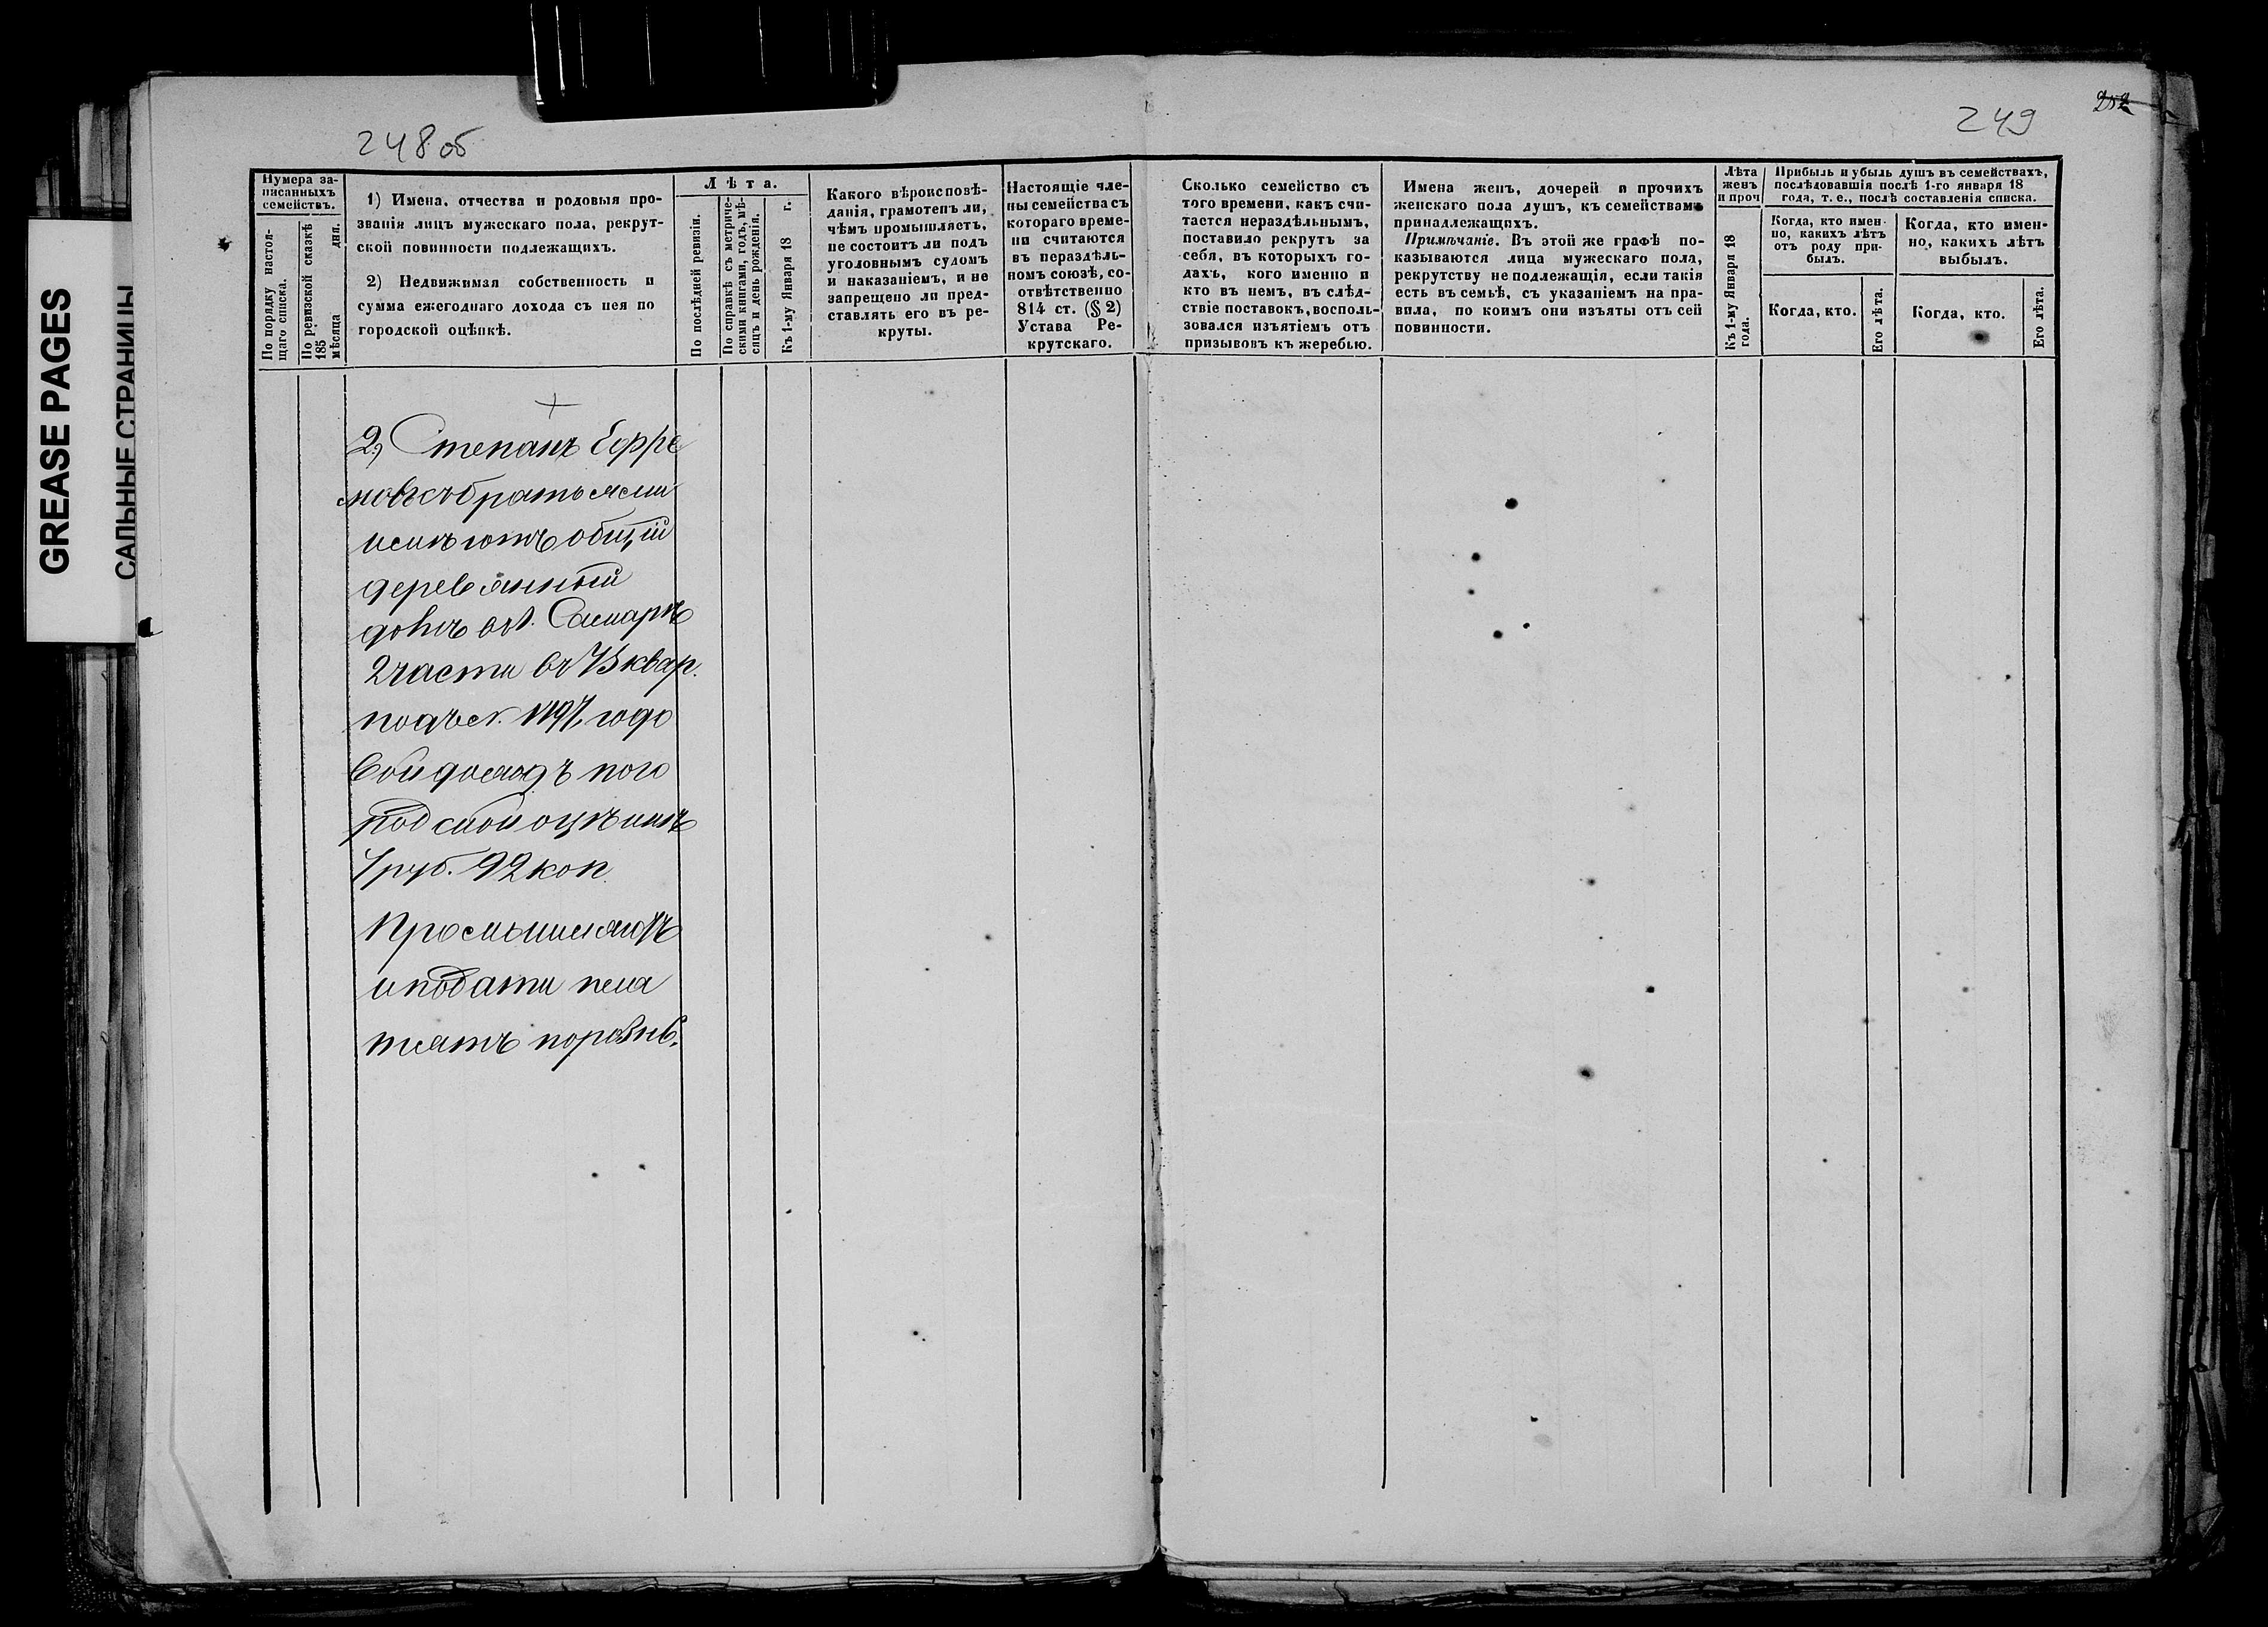 GREASE PAGES
САЛЬНЫЕ СТРАНИЦЫ
248об
249
252
Нумера за-
писанныхъ
семействъ.
По порядку настоя-
щаго списка.
По ревизской сказкѣ
185 мѣсяца дня.
1) Имена, отчества и родовыя про-
званія лицъ мужескаго пола, рекрут-
ской повинности подлежащихъ.
2) Недвижимая собственность и
сумма ежегоднаго дохода съ нея по
городской оцѣнкѣ.
Лѣта.
По послѣдней ревизіи.
По справкѣ съ метриче-
скими книгами, годъ, мѣ-
сяцъ и день рожденія.
Къ 1-му Января 18 г.
Какого вѣроисповѣ-
данія, грамотенъ ли,
чѣмъ промышляетъ,
не состоитъ ли подъ
уголовнымъ судомъ
и наказаніемъ, и не
запрещено ли пред-
ставлять его въ ре-
круты.
Настоящіе чле-
ны семейства съ
котораго време-
ни считаются
въ нераздѣль-
номъ союзѣ, со-
отвѣтственно
814 ст. (§ 2)
Устава Ре-
крутскаго.
Сколько семейство съ
того времени, какъ счи-
тается нераздѣльнымъ,
поставило рекрутъ за
себя, въ которыхъ го-
дахъ, кого именно и
кто въ немъ, въ слѣд-
ствіе поставокъ, восполь-
зовался изъятіемъ отъ
призывовъ къ жеребью.
Имена женъ, дочерей и прочихъ
женскаго пола душъ, къ семействамъ
принадлежащихъ.
Примѣчаніе. Въ этой же графѣ по-
казываются лица мужескаго пола,
рекрутству не подлежащія, если такія
есть въ семьѣ, съ указаніемъ на пра-
вила, по коимъ они изъяты отъ сей
повинности.
Лѣта
женъ
и проч
Къ 1-му Января 18
года.
Прибыль и убыль душъ въ семействахъ,
послѣдовавшія послѣ 1-го января 18
года, т. е., послѣ составленія списка.
Когда, кто имен-
но, какихъ лѣтъ
отъ роду при-
былъ.
Когда, кто имен-
но, какихъ лѣтъ
выбылъ.
Когда, кто.
Его лѣта.
Когда, кто.
Его лѣта.
2) Степанъ Ефре
мовъ съ братьями
имѣютъ общій
деревянный
домъ въ г. Самарѣ
2 части въ квар.
подъ № годо
вой доходъ по го
родской оцѣнкѣ
руб. 92 коп
Промышляютъ
и подати пла
тятъ порознь.